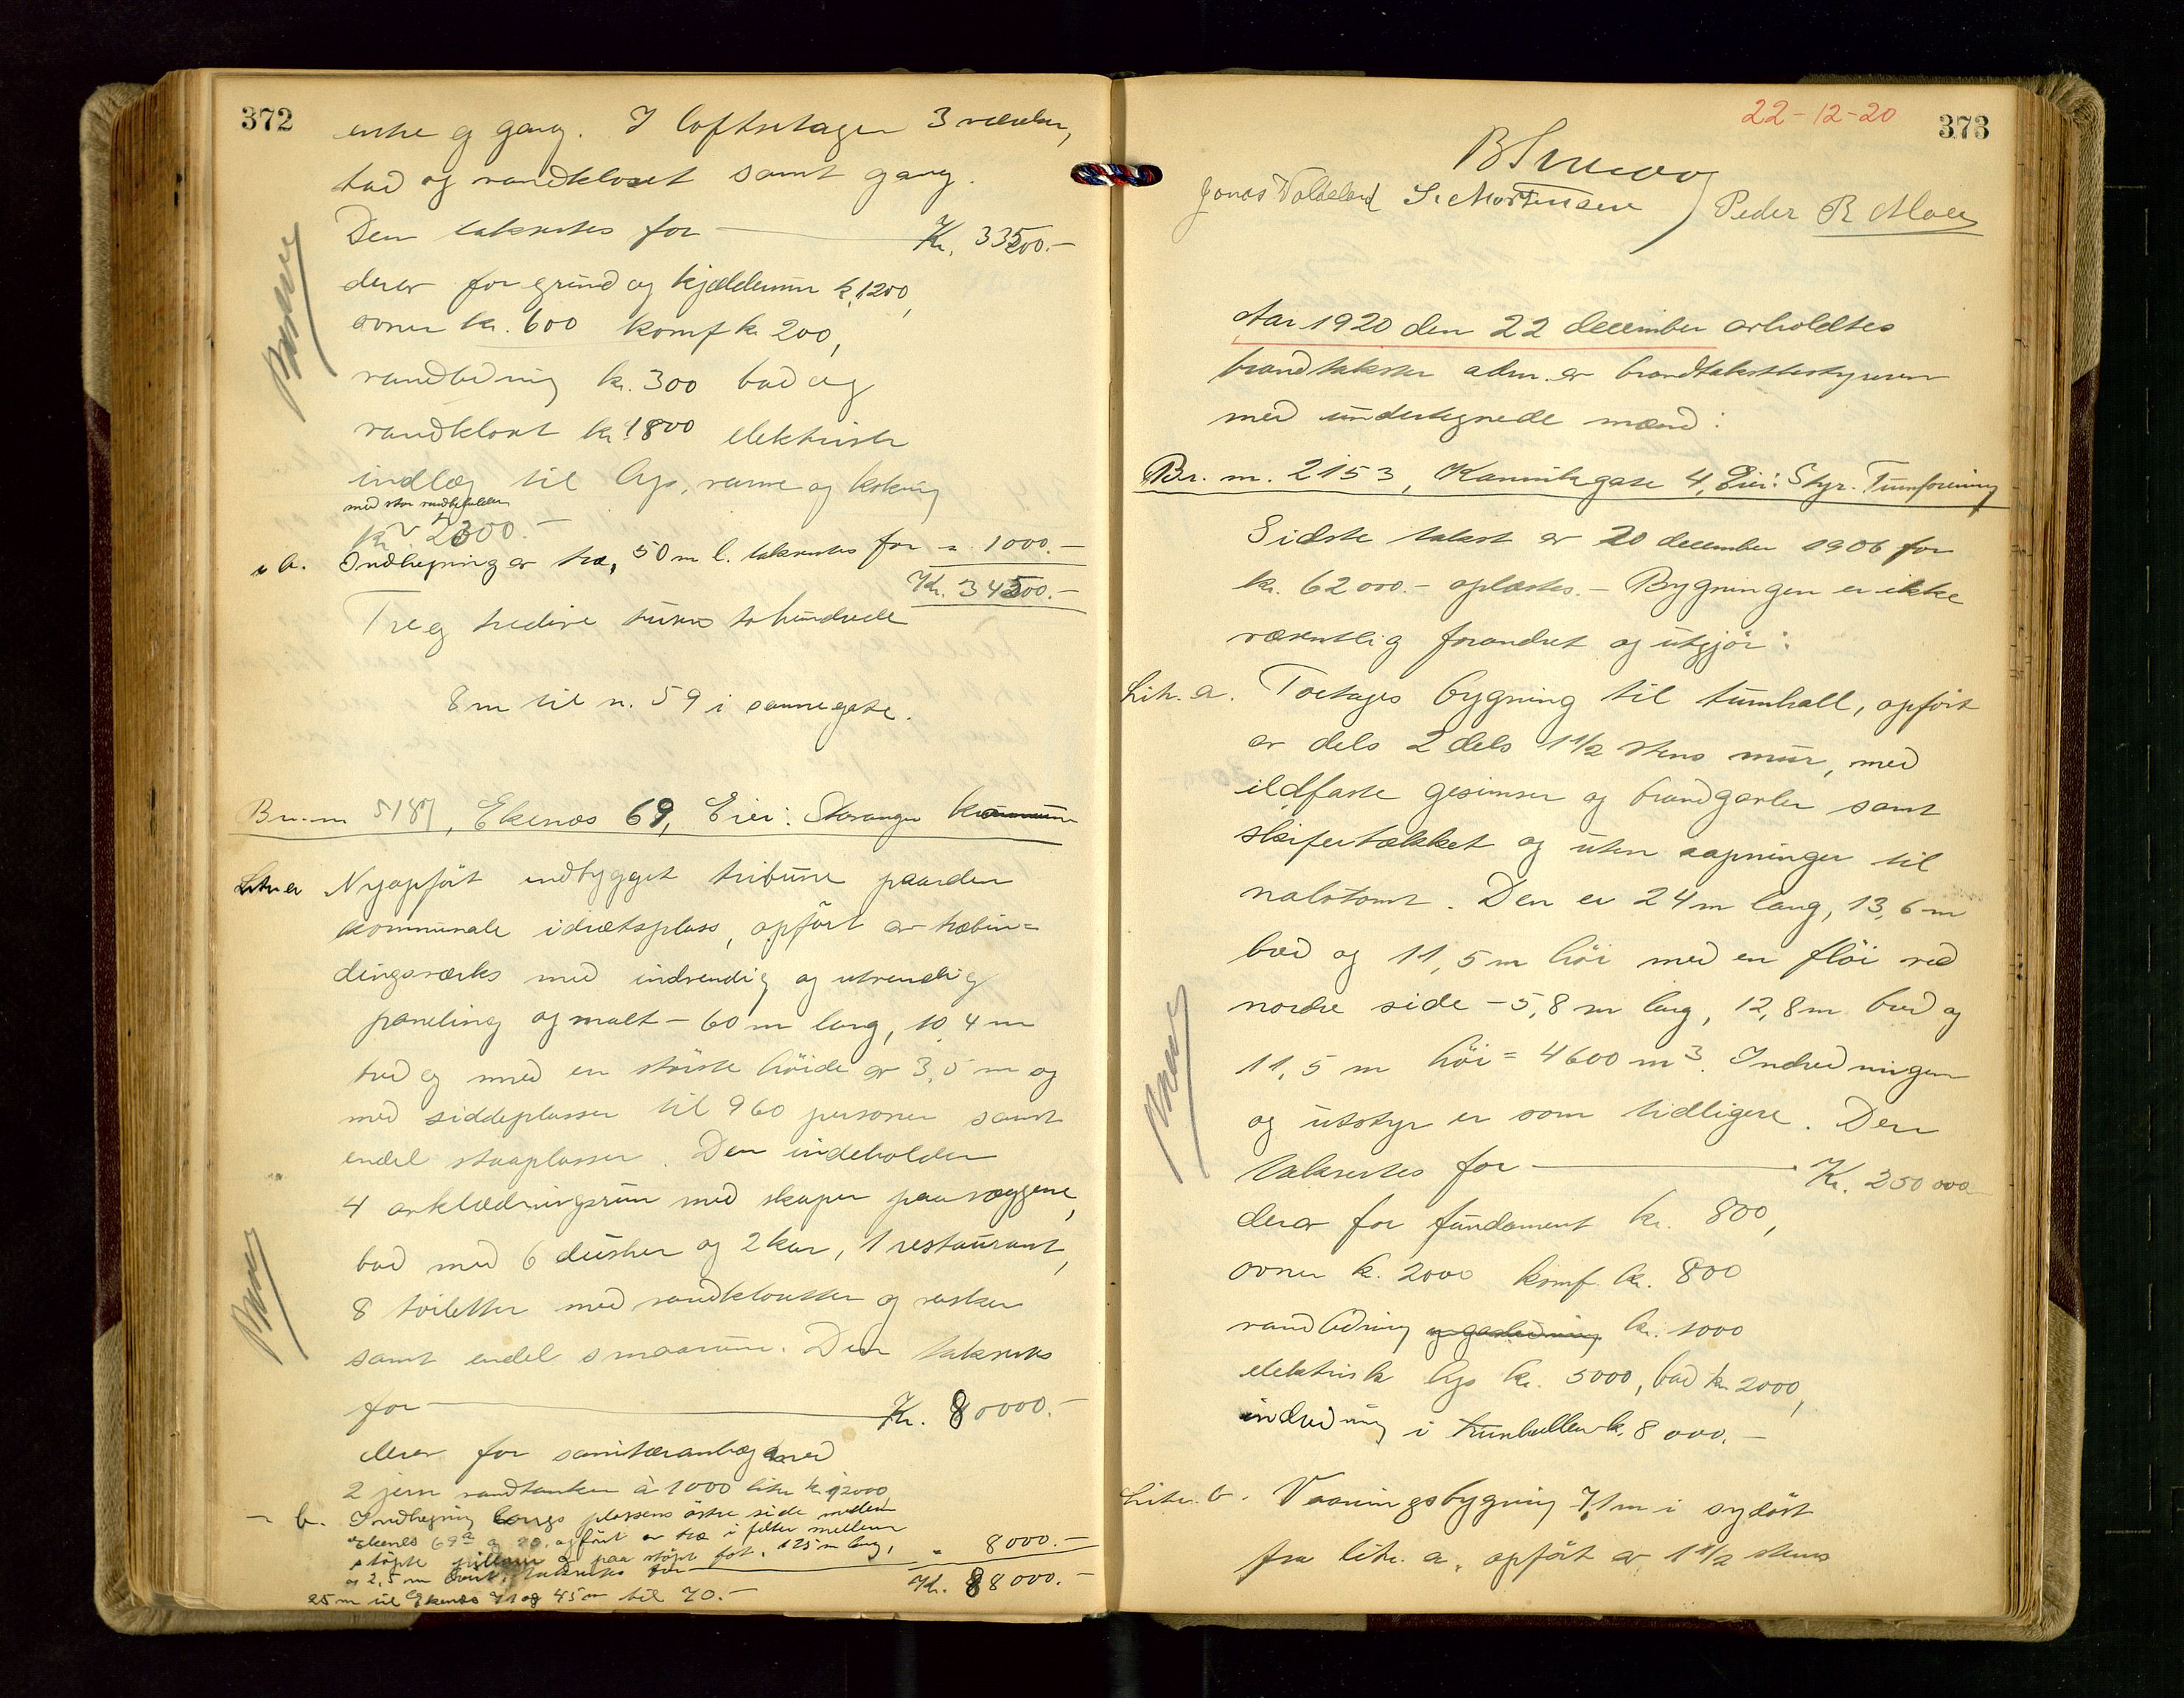 372
entre og gang. I loftsetagen 3 værelser,
bad og vandkloset samt gang.
Den takseres for — Kr. 33500.-
derav for grund og kjældermur k. 1200,
ovner kr. 600 komf kr 200,
vandledning kr. 300 bad og
vandkloset kr. 1800 elektrisk
indlæg til lys, varme og kokning
med stor vandbeholder
kr 2300.-
- b. Indhegning av træ, 50 m l. takseres for - 1000.-
Kr. 34500.-
Tre og tredive tusen tohundrede
8 m til n. 59 i samme gate.
Br. nr 5187, Ekenæs 69, Eier: Stavanger kommune
Litr a Nyopført indbygget tribune paa den
kommunale idrætsplass, opført av træbin=
dingsverks med indvendig og utvendig
paneling og malt - 60 m lang, 10,4 m
bred og med en største høide av 3,5 m og
med siddeplasser til 960 personer samt
endel staaplasser. Den indeholder
4 avklædningsrum med skaper paa væggene,
bad med 6 dusher og 2 kar, 1 restaurant,
8 toiletter med vandklosetter og vasker
samt endel smaarum. Den takseres
for — Kr. 80000.-
derav for sanitæranlæg med
2 jern vandtanker à 1000 liter kr 12000
- b. Indhegning langs plassens østre side mellem
Ekenæs 69a og 70, opført av træ i felter mellem
støpte pillarer og paa støpt fot, 125 m lang,
og 2,5 m høi, takseres for — " 8000.-
Kr. 88000.-
25 m til Ekenæs 71 og 45 m til 70.-
22-12-20
373
Jonas Valdeland S. Mortensen Peder R Moe
Aar 1920 den 22 december avholdtes
brandtakster adm. av brandtakstbestyreren
med undertegnede mænd:
Br. nr. 2153, Kannikgate 4, Eier: Stgr. Turnforening
Sidste takst av 20 december 1906 for
kr. 62000.- oplæstes. - Bygningen er ikke
væsentlig forandret og utgjør:
Litr. a. Toetages bygning til turnhall, opført
av dels 2 dels 1 1/2 stens mur, med
ildfaste gesimser og brandgavler samt
skifertækket og uten aapninger til
nabotomt. Den er 24 m lang, 13,6 m
bred og 11,5 m høi med en fløi ved
nordre side - 5,8 m lang, 12,8 m bred og
11,5 m høi = 4600 m3. Indredningen
og utstyr er som tidligere. Den
takseres for — Kr. 250000
derav for fundament kr. 800,
ovner k. 2000 komf. kr. 800
vandledning og gasledning kr. 1000
elektrisk lys kr. 5000, bad kr. 2000,
indredning i turnhallen k. 8000.-
Litr. b. Vaaningsbygning 7,1 m i sydøst
fra litr. a, opført av 1 1/2 stens